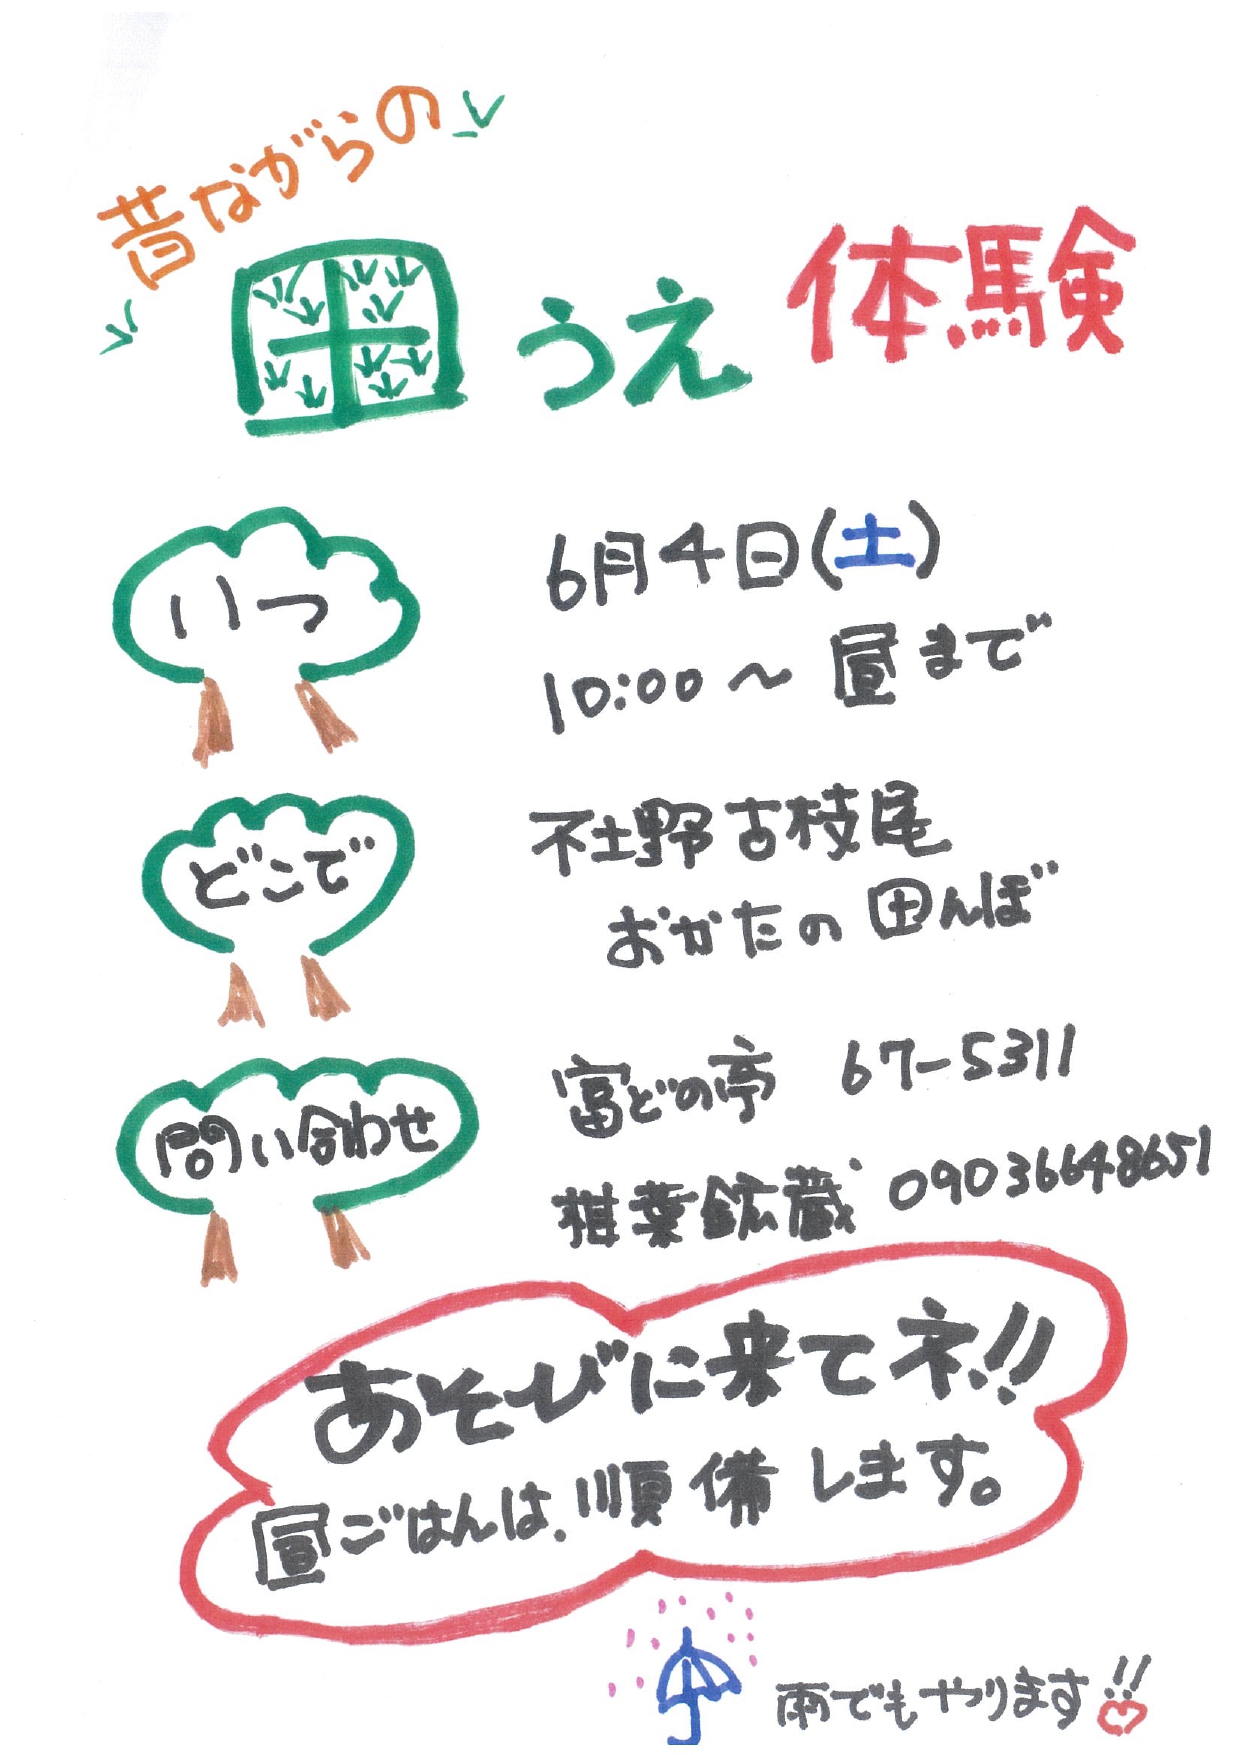 昔ながらの
田うえ 体験
いつ
6月4日(土)
10:00〜昼まで
どこで
不土野古枝尾
おかたの田んぼ
問い合わせ
富どの亭 67-5311
椎葉鉱蔵 09036648651
あそびに来てネ!!
昼ごはんは、順備します。
雨でもやります!!